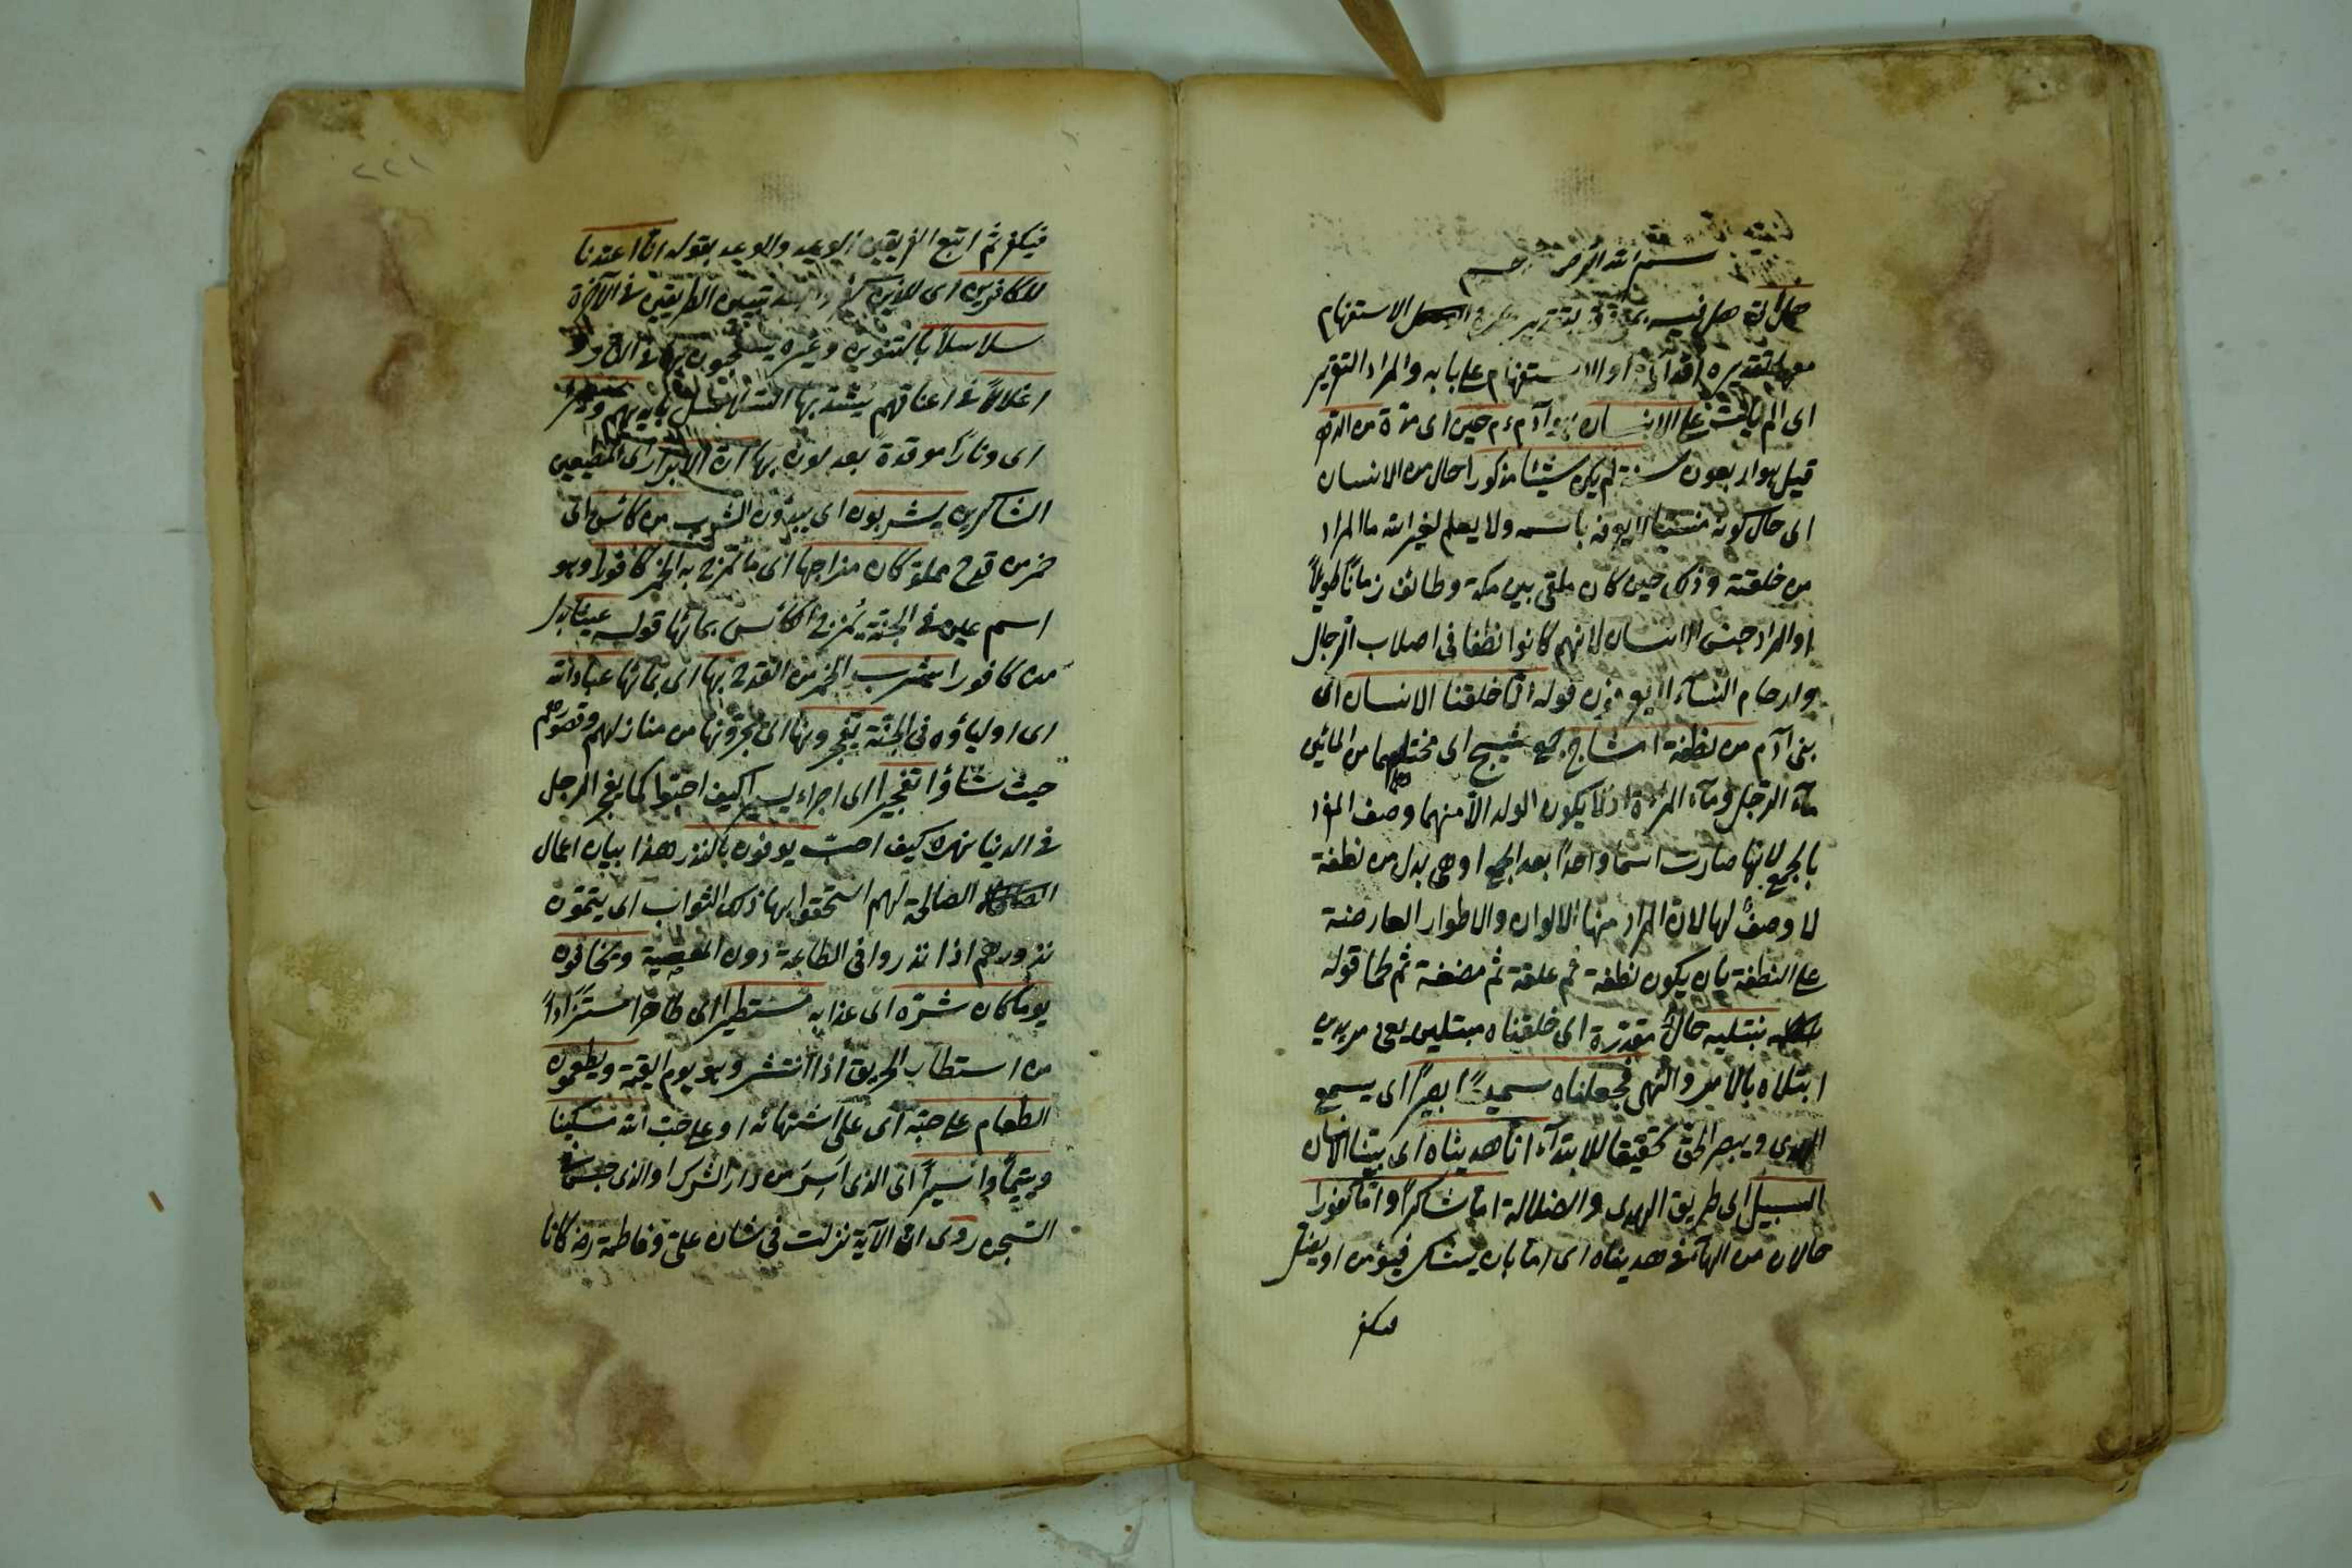 بسم الله الرحمن الرحيم
هل اتى هل فيه بمعنى قد بتقدير همزة الاستفهام
معها تقديره اقد اتى او الاستفهام على بابه والمراد التقرير
اى الم يأت على الانسان هو آدم عم حين اى مدة من الدهر
قيل هو اربعون سنة لم يكن شيئا مذكورا حال من الانسان
اى حال كونه منسيا لا يعرف باسمه ولا يعلم لغير الله ما المراد
من خلقته وذلك حين كان ملقى بين مكة وطائف زمانا طويلاً
او المراد جنس الانسان لانهم كانوا نطفا فى اصلاب الرجال
وارحام النساء لا يعرفون قوله انّا خلقنا الانسان اى
بنى آدم من نطفة امشاج جمع مشيج اى مختلط من المائين
ماء الرجل وماء المرءة اذ لا يكون الولد الا منهما وصف المفرد
بالجمع لانها صارت اسما واحدًا بعد الجمع او هى بدل من نطفة
لا وصفٌ لها لان المراد منها الالوان والاطوار العارضة
على النطفة بان يكون نطفة ثم علقة ثم مضغة ثم لحما قوله
نبتليه حالٌ مقدّرة اى خلقناه مبتلين يعنى مريدين
ابتلاه بالامر والنهى فجعلناه سميعًا بصيرًا اى يسمع
الهدى ويبصر الحق تحقيقا للابتداء انّا هديناه اى بيّنا للانسان
السبيل اى طريق الهدى والضلالة امّا شاكرًا وامّا كفورا
حالان من الهاء فى هديناه اى امّا بان يشكر فيؤمن او يضلّ
فيكفر
فيكفر ثم اتبع الفريقين الوعيد والوعد بقوله انّا اعتدنا
للكافرين اى للذين كفروا بعد تبيين الطريقين فى الآخرة
سلاسلاً بالتنوين وغيره يسحبون بها فى النار و
اغلالاً فى اعناقهم يشدّ بها ايديهم وسعيرا
اى ونارًا موقدة يعذبون بها انّ الابرار اى المطيعين
الشاكرين يشربون اى يبدؤن الشرب من كأس اى
خمر من قدح مملوّ كان مزاجها اى ما تمزج به الخمر كافورا وهو
اسم عين فى الجنة يُمزج الكأس بمائها قوله عينا بدل
من كافورا يشرب الخمر من القدح بها اى بمائها عباد الله
اى اولياؤه فى الجنّة يفجرونها اى يجرونها من منازلهم وقصورهم
حيث شاؤا تفجيرا اى اجراء يسيرا كيف احبّوا كما يفجر الرجل
فى الدنيا نهره كيف احبّ يوفون بالنذر هذا بيان اعمال
الصالحة لهم استحقوا بها ذلك الثواب اى يتمّون
نذورهم اذا نذروا فى الطاعة دون المعصية ويخافون
يوما كان شرّه اى عذابه مستطيرا اى ظاهرا
من استطار الحريق اذا انتشر وهو يوم القيمة ويطعمون
الطعام على حبّه اى على اشتهائه او على حبّ الله مسكينا
ويتيمًا واسيرًا اى الذى اسر من دار الشرك او الذى حبس فى
السجن روى انّ الآية نزلت فى شان علىّ وفاطمة رض كانا